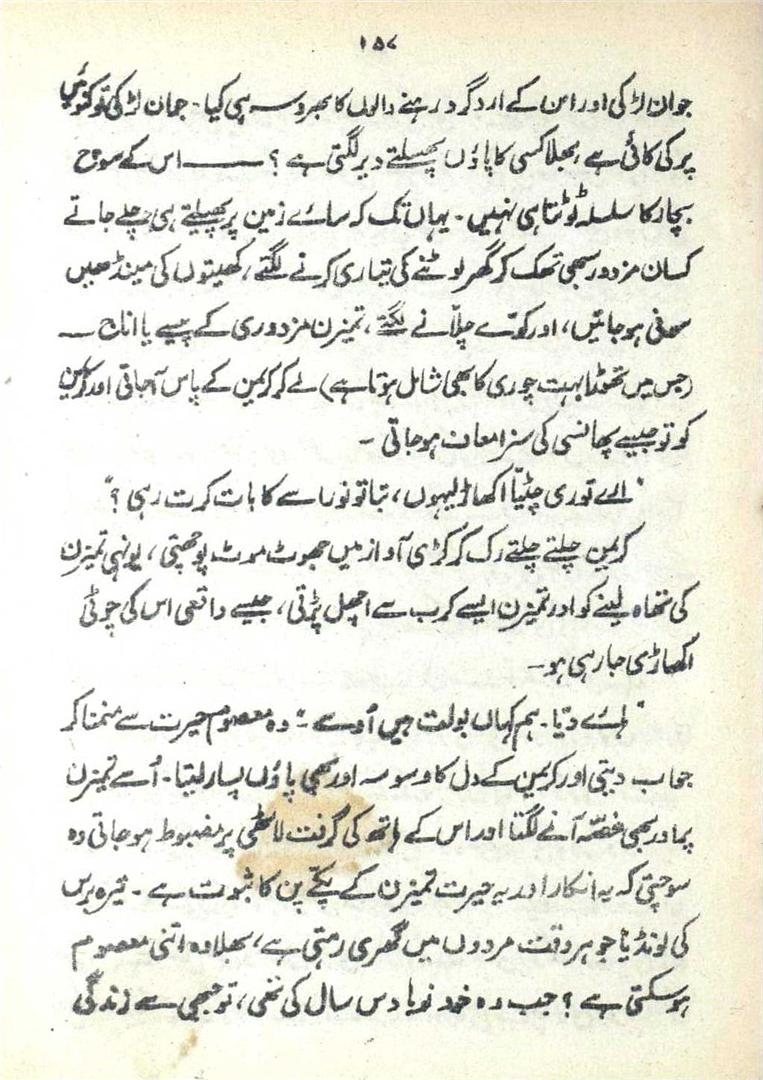 ۱۵۷
جوان لڑکی اور اس کے ارد گرد رہنے والوں کا بھروسہ ہی کیا۔ جوان لڑکی تو کنوئیں
پر کی کائی ہے بھلا کسی کا پاؤں پھسلتے دیر لگتی ہے؟ ——— اس کے سوچ
بچار کا سلسلہ ٹوٹتا ہی نہیں۔ یہاں تک کہ سائے زمین پر پھیلتے ہی چلے جاتے
کسان مزدور سبھی تھک کر گھر لوٹنے کی تیاری کرنے لگتے، کھیتوں کی مینڈھیں
سونی ہو جاتیں، اور کوّے چلّانے لگتے، تمیزن مزدوری کے پیسے یا اناج ــ
(جس میں تھوڑا بہت چوری کا بھی شامل ہوتا ہے) لے کر کریمن کے پاس آجاتی اور کریمن
کو تو جیسے پھانسی کی سزا معاف ہو جاتی ۔
"اے توری چٹیّا اکھاڑ لیہوں، بتا تو نورا سے کا بات کرت رہی؟"
کریمن چلتے چلتے رک کر کڑی آواز میں جھوٹ موٹ پوچھتی، یونہی تمیزن
کی تھاہ لینے کو اور تمیزن ایسے کرب سے اچھل پڑتی، جیسے واقعی اس کی چوٹی
اکھاڑی جا رہی ہو۔
"ہائے دیّا۔ ہم کہاں بولت ہیں اُو سے۔" وہ معصوم حیرت سے منمنا کر
جواب دیتی اور کریمن کے دل کا وسوسہ اور بھی پاؤں پسار لیتا۔ اُسے تمیزن
پر اور بھی غصّہ آنے لگتا اور اس کے ہاتھ کی گرفت لاٹھی پر مضبوط ہو جاتی وہ
سوچتی کہ یہ انکار اور یہ حیرت تمیزن کے پکّے پن کا ثبوت ہے۔ تیرہ برس
کی لونڈیا جو ہر وقت مردوں میں گھری رہتی ہے، بھلا وہ اتنی معصوم
ہو سکتی ہے؟ جب وہ خود نو یا دس سال کی تھی، تو جبھی سے زندگی